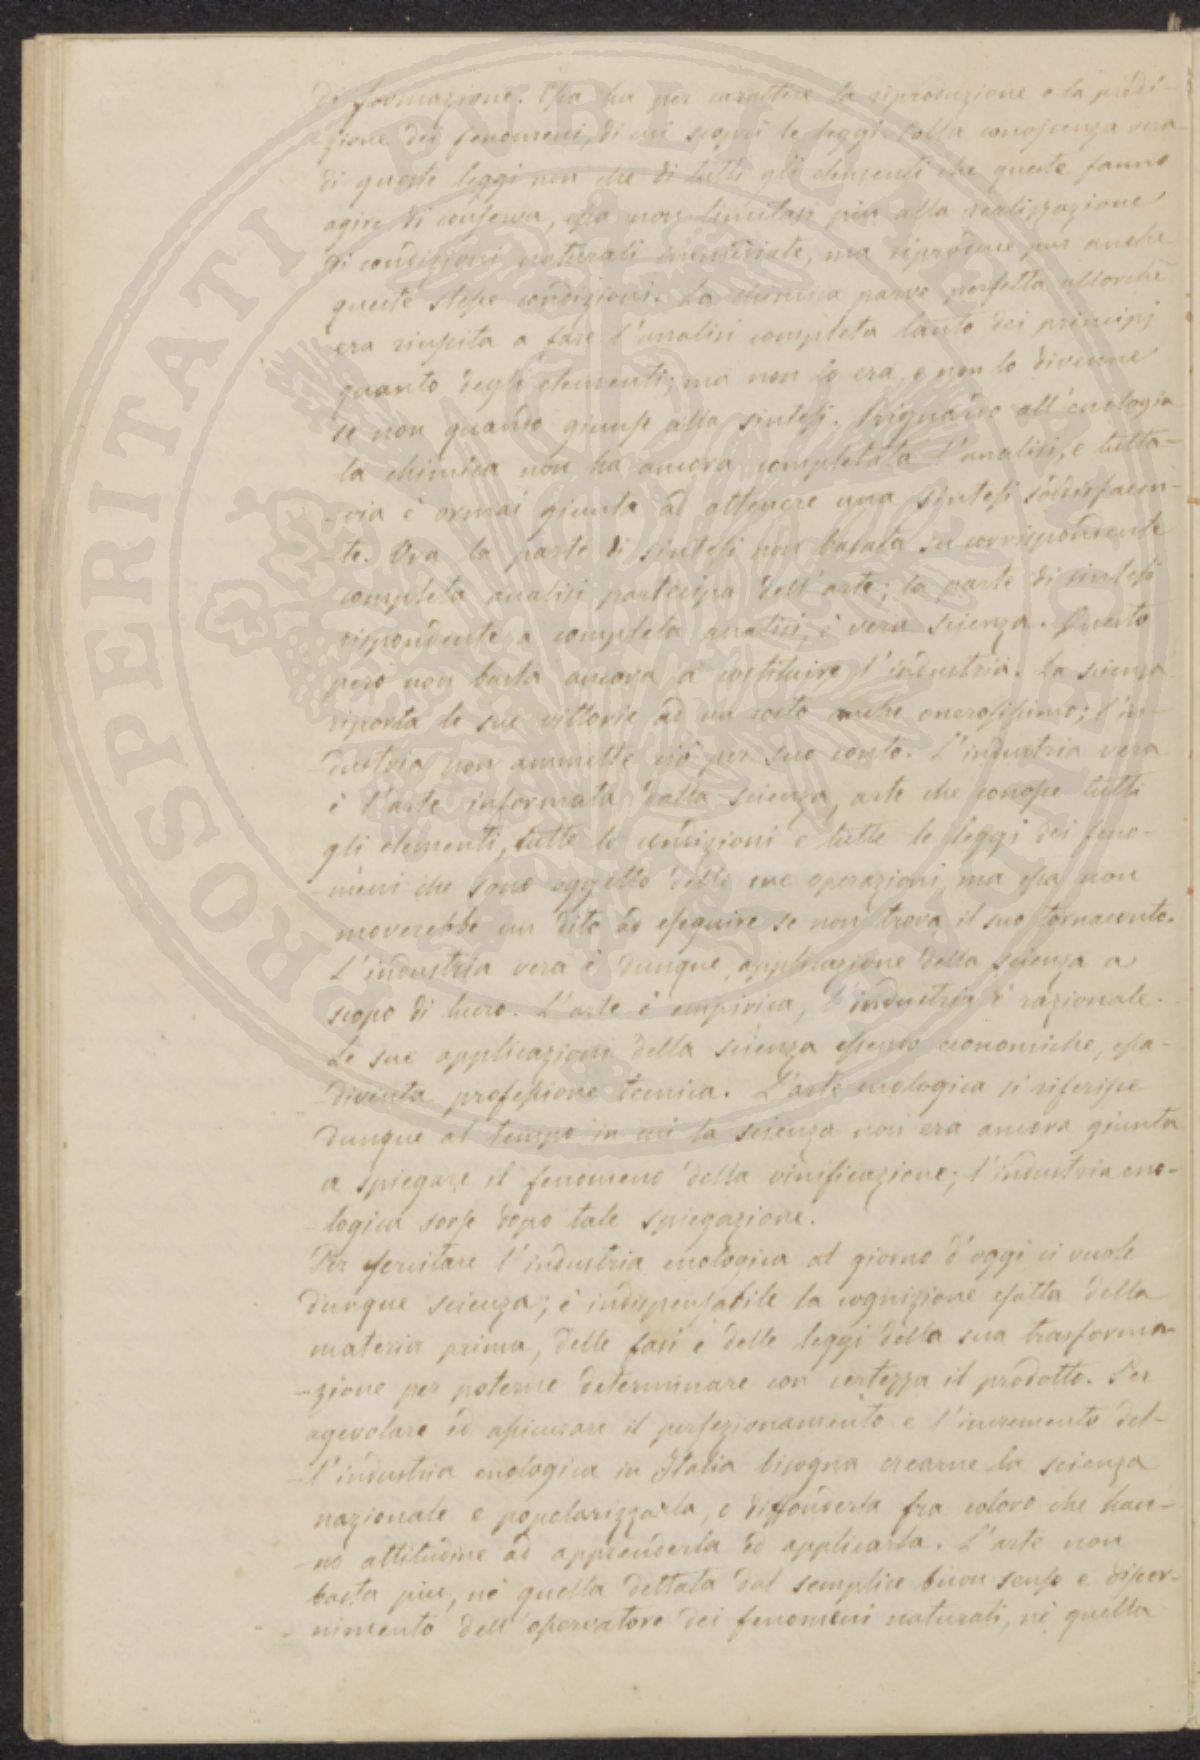 di formazione. Essa ha per carattere la riproduzione e la predi-
-zione dei fenomeni, di cui scoprì le leggi. Colla conoscenza vera
di queste leggi non che di tutti gli elementi che queste fanno
agire di conserva, essa non limitasi più alla realizzazione
di condizioni naturali immediate, ma riproduce pur anche
queste stesse condizioni. La chimica parve perfetta allorchè
era riuscita a fare l'analisi completa tanto dei principj
quanto degli elementi; ma non lo era, e non lo divenne
se non quando giunse alla sintesi. Riguardo all'enologia
la chimica non ha ancora completata l'analisi, e tutta-
-via è ormai giunta ad ottenere una sintesi soddisfacen-
-te. Ora la parte di sintesi non basata su corrispondente
completa analisi partecipa dell'arte; la parte di sintesi
rispondente a completa analisi, è vera scienza. Questo
però non basta ancora a costituire l'industria. La scienza
riporta le sue vittorie ad un costo anche onerosissimo; l'in-
-dustria non ammette ciò per suo conto. L'industria vera
è l'arte informata dalla scienza, arte che conosce tutti
gli elementi, tutte le condizioni e tutte le leggi dei feno-
-meni che sono oggetto delle sue operazioni, ma essa non
moverebbe un dito ad eseguire se non trova il suo tornaconto.
L'industria vera è dunque, applicazione della scienza a
scopo di lucro. L'arte è empirica, l'industria è razionale.
Le sue applicazioni della scienza essendo economiche, essa
diventa professione tecnica. L'arte enologica si riferisce
dunque al tempo in cui la scienza non era ancora giunta
a spiegare il fenomeno della vinificazione; l'industria eno-
-logica sorse dopo tale spiegazione.
Per esercitare l'industria enologica al giorno d'oggi ci vuole
dunque scienza; è indispensabile la cognizione esatta della
materia prima, delle fasi e delle leggi della sua trasforma-
-zione per poterne determinare con certezza il prodotto. Per
agevolare ed assicurare il perfezionamento e l'incremento del-
-l'industria enologica in Italia bisogna crearne la scienza
nazionale e popolarizzarla, o diffonderla fra coloro che han-
-no attitudine ad apprenderla ed applicarla. L'arte non
basta più, nè quella dettata dal semplice buon senso e discer-
-nimento dell'osservatore dei fenomeni naturali, nè quella
PROSPERITATI PVBLICAE